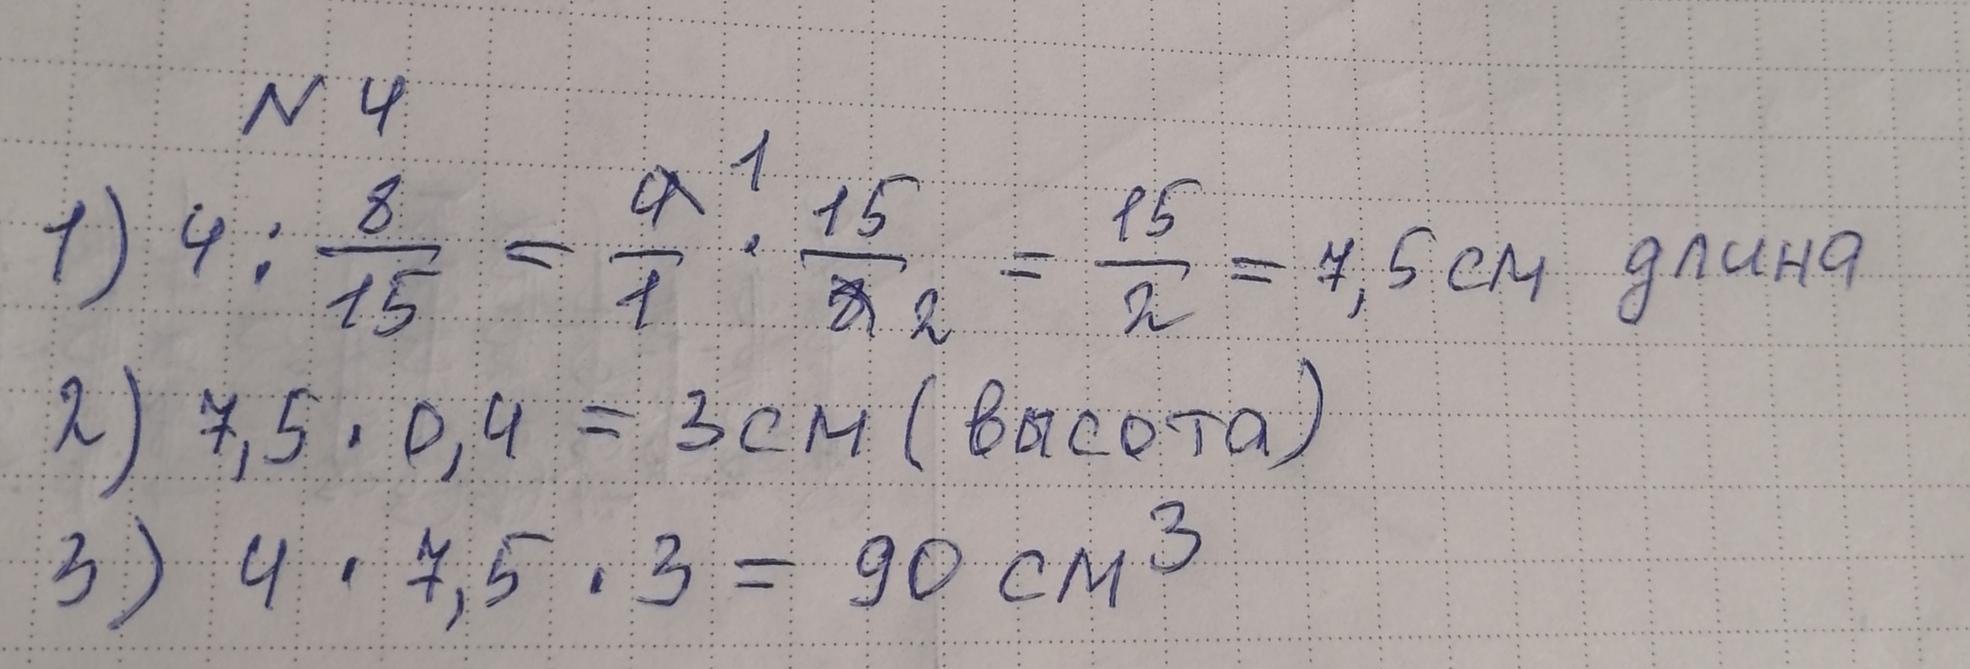 N 4
1) 4 : 8/15 = 4/1 1 · 15/8 2 = 15/2 = 7,5 см длина
2) 7,5 · 0,4 = 3 см (высота)
3) 4 · 7,5 · 3 = 90 см³